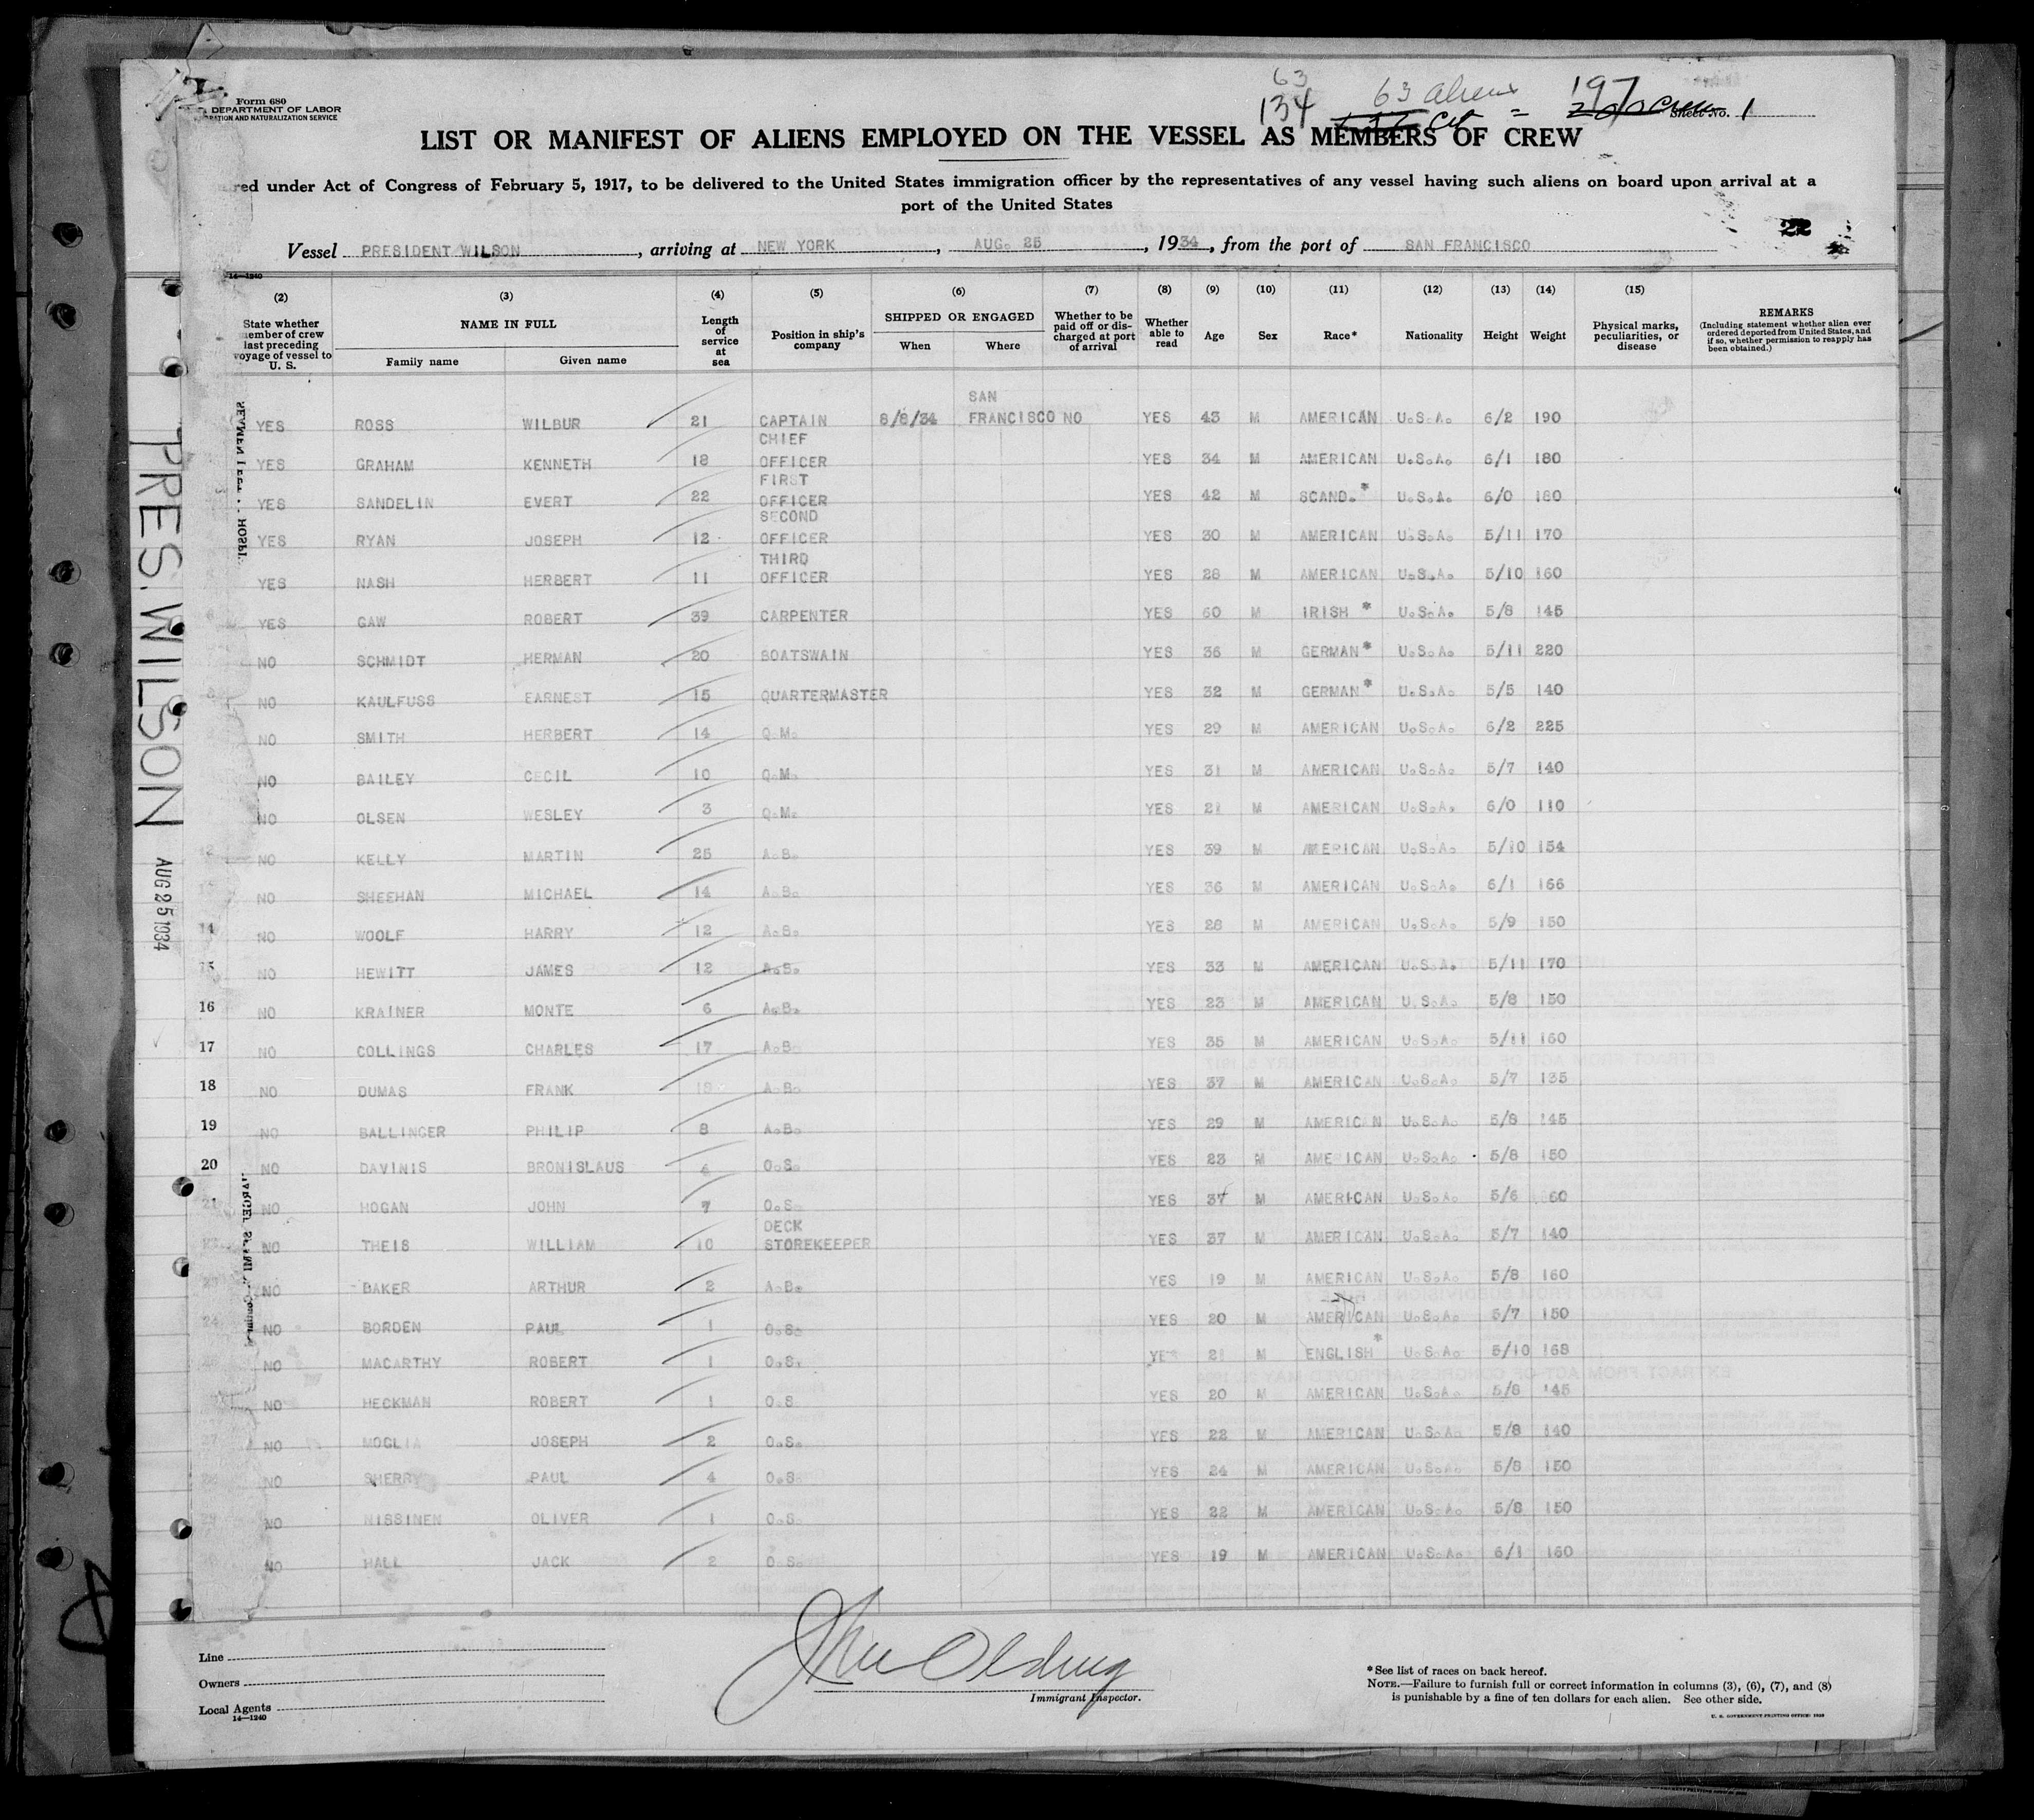 63
134 63 aliens = 197
Form 680
DEPARTMENT OF LABOR
Sheet No. 1
LIST OR MANIFEST OF ALIENS EMPLOYED ON THE VESSEL AS MEMBERS OF CREW
red under Act of Congress of February 5, 1917, to be delivered to the United States immigration officer by the representatives of any vessel having such aliens on board upon arrival at a
port of the United States
22
Vessel PRESIDENT WILSON, arriving at NEW YORK, AUG. 25, 1934, from the port of SAN FRANCISCO
14—1240
(2) (3) (4) (5) (6) (7) (8) (9) (10) (11) (12) (13) (14) (15)
State whether member of crew last preceding voyage of vessel to U. S. NAME IN FULL Family name Given name Length of service at sea Position in ship's company SHIPPED OR ENGAGED When Where Whether to be paid off or discharged at port of arrival Whether able to read Age Sex Race* Nationality Height Weight Physical marks, peculiarities, or disease REMARKS (Including statement whether alien ever ordered deported from United States, and if so, whether permission to reapply has been obtained.)
YES ROSS WILBUR 21 CAPTAIN 8/8/34 SAN FRANCISCO NO YES 43 M AMERICAN U.S.A. 6/2 190
YES GRAHAM KENNETH 18 CHIEF OFFICER YES 34 M AMERICAN U.S.A. 6/1 180
YES SANDELIN EVERT 22 FIRST OFFICER YES 42 M SCAND.* U.S.A. 6/0 180
YES RYAN JOSEPH 12 SECOND OFFICER YES 30 M AMERICAN U.S.A. 5/11 170
YES NASH HERBERT 11 THIRD OFFICER YES 28 M AMERICAN U.S.A. 5/10 160
YES GAW ROBERT 39 CARPENTER YES 60 M IRISH * U.S.A. 5/8 145
NO SCHMIDT HERMAN 20 BOATSWAIN YES 36 M GERMAN* U.S.A. 5/11 220
NO KAULFUSS EARNEST 15 QUARTERMASTER YES 32 M GERMAN* U.S.A. 5/5 140
NO SMITH HERBERT 14 Q.M. YES 29 M AMERICAN U.S.A. 6/2 225
NO BAILEY CECIL 10 Q.M. YES 31 M AMERICAN U.S.A. 5/7 140
NO OLSEN WESLEY 3 Q.M. YES 21 M AMERICAN U.S.A. 6/0 110
12 NO KELLY MARTIN 25 A.B. YES 39 M AMERICAN U.S.A. 5/10 154
NO SHEEHAN MICHAEL 14 A.B. YES 36 M AMERICAN U.S.A. 6/1 166
14 NO WOOLF HARRY 12 A.B. YES 28 M AMERICAN U.S.A. 5/9 150
15 NO HEWITT JAMES 12 A.B. YES 33 M AMERICAN U.S.A. 5/11 170
16 NO KRAINER MONTE 6 A.B. YES 23 M AMERICAN U.S.A. 5/8 150
17 NO COLLINGS CHARLES 17 A.B. YES 35 M AMERICAN U.S.A. 5/11 160
18 NO DUMAS FRANK 18 A.B. YES 37 M AMERICAN U.S.A. 5/7 135
19 NO BALLINGER PHILIP 8 A.B. YES 29 M AMERICAN U.S.A. 5/8 145
20 NO DAVINIS BRONISLAUS O.S. YES 23 M AMERICAN U.S.A. 5/8 150
21 NO HOGAN JOHN 7 O.S. YES 37 M AMERICAN U.S.A. 5/6 60
NO THEIS WILLIAM 10 DECK STOREKEEPER YES 37 M AMERICAN U.S.A. 5/7 140
23 NO BAKER ARTHUR 2 A.B. YES 19 M AMERICAN U.S.A. 5/8 160
24 NO BORDEN PAUL 1 O.S. YES 20 M AMERICAN U.S.A. 5/7 150
NO MACARTHY ROBERT 1 O.S. YES 21 M ENGLISH * U.S.A. 5/10 168
NO HECKMAN ROBERT 1 O.S. YES 20 M AMERICAN U.S.A. 5/8 145
27 NO MOGLIA JOSEPH 2 O.S. YES 22 M AMERICAN U.S.A. 5/8 140
NO SHERRY PAUL 4 O.S. YES 24 M AMERICAN U.S.A. 5/8 150
NO NISSINEN OLIVER 1 O.S. YES 22 M AMERICAN U.S.A. 5/8 150
NO HALL JACK 2 O.S. YES 19 M AMERICAN U.S.A. 6/1 160
PRES. WILSON
AUG 25 1934
Line
Owners
Local Agents
14—1240
Immigrant Inspector.
*See list of races on back hereof.
NOTE.—Failure to furnish full or correct information in columns (3), (6), (7), and (8)
is punishable by a fine of ten dollars for each alien. See other side.
U. S. GOVERNMENT PRINTING OFFICE: 1932